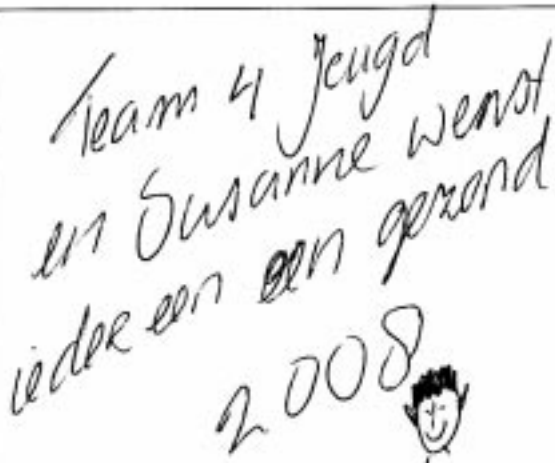 Team 4 Jeugd
en Susanne wenst
ieder een een gezond
2008